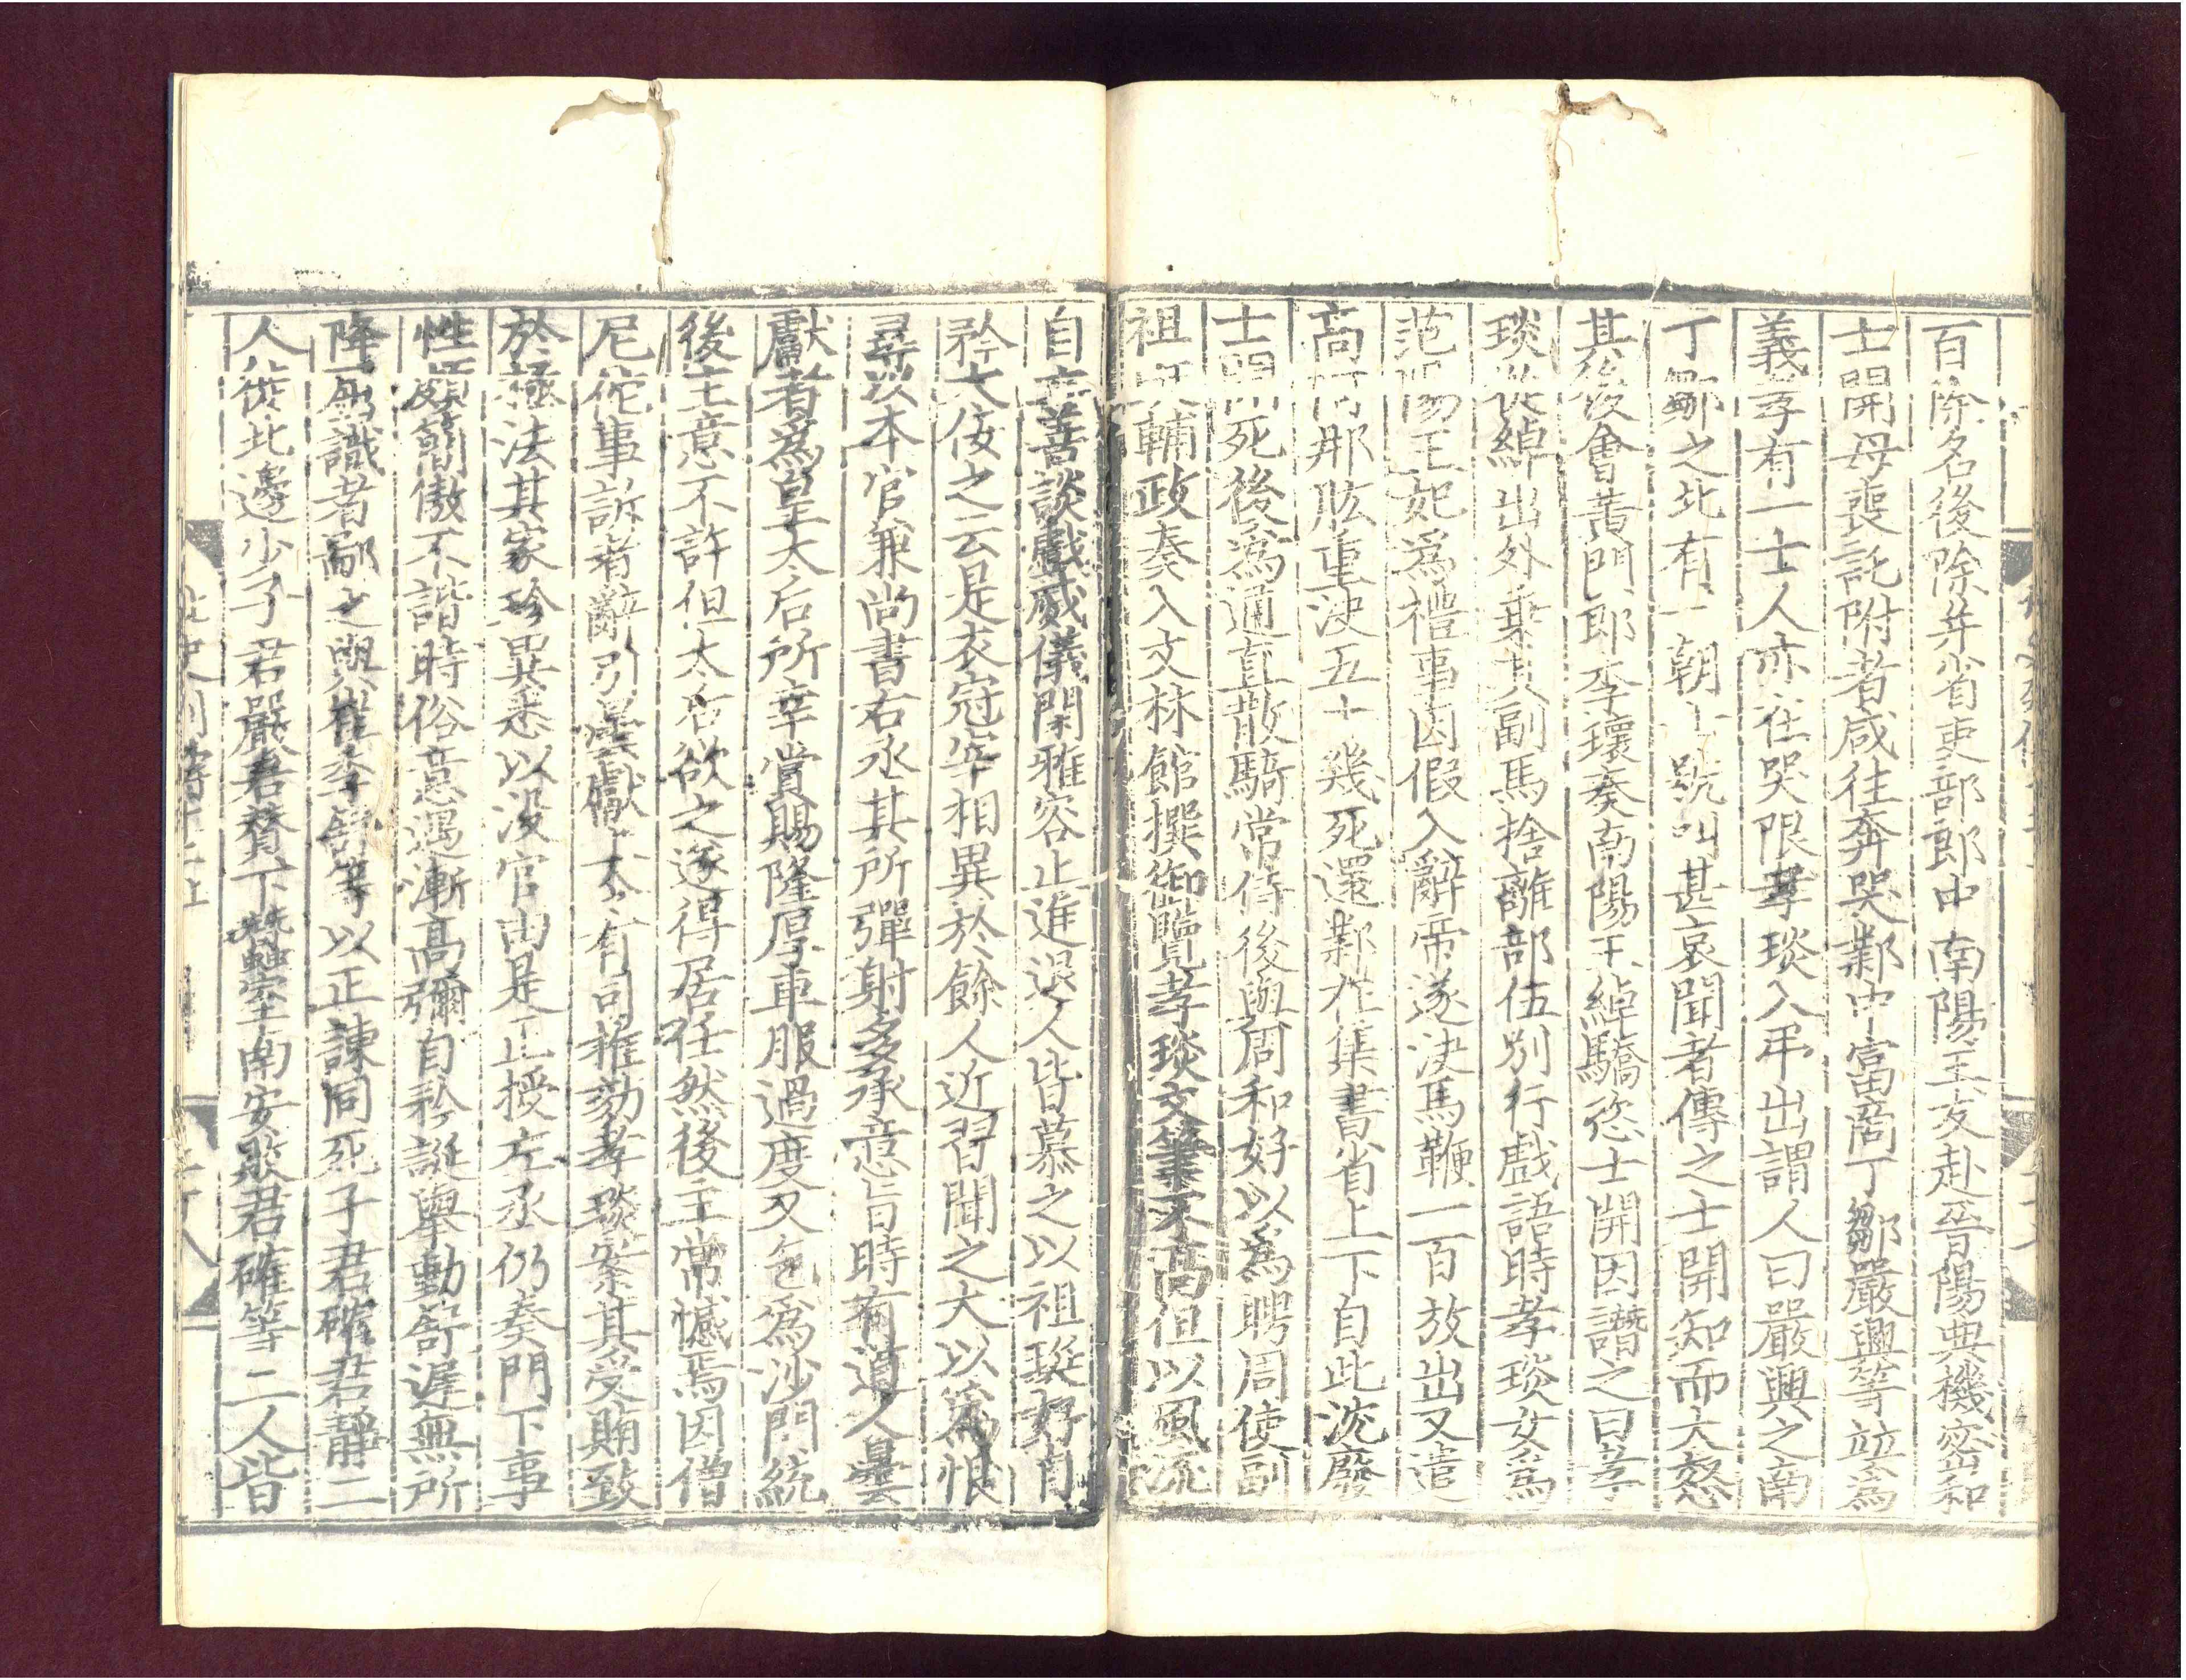 百除名後除并省吏部郎中南陽王友赴晉陽典機密和
士開母喪託附者咸往奔哭鄴中富商丁鄒嚴興等並爲
義孝有一士人亦在哭限孝琰入弔出謂人曰嚴興之南
丁鄒之北有一朝士號叫甚哀聞者傳之士開知而大怒
其後會黃門郎李瓌奏南陽王綽驕恣士開因譖之曰孝
琰從綽出外乘其副馬捨離部伍別行戲語時孝琰女爲
范陽王妃爲禮事因假入辭帝遂決馬鞭一百放出又遣
高阿那肱重決五十幾死還鄴在集書省上下自此沈廢
士開死後爲通直散騎常侍後與周和好以爲聘周使副
祖珽輔政奏入文林館撰御覽孝琰文筆不高但以風流
自立善談戲威儀閑雅容止進退人皆慕之以祖珽好自
矜大佞之云是衣冠宰相異於餘人近習聞之大以爲恨
尋以本官兼尚書右丞其所彈射多承意旨時有道人曇
獻者爲皇太后所幸賞賜隆厚車服過度又乞爲沙門統
後主意不許但太后欲之遂得居任然後主常憾焉因僧
尼佗事訴者辭引曇獻上令有司推劾孝琰案其受賄致
於極法其家珍異悉以沒官由是正授左丞仍奏門下事
性頗簡傲不諧時俗意遇漸高彌自矜誕舉動舒遲無所
降屈識者鄙之與崔季舒等以正諫同死子君確君靜二
人徙北邊少子君嚴君贊下蠶室南安敗君確等二人皆
北史列傳十二上
二十八